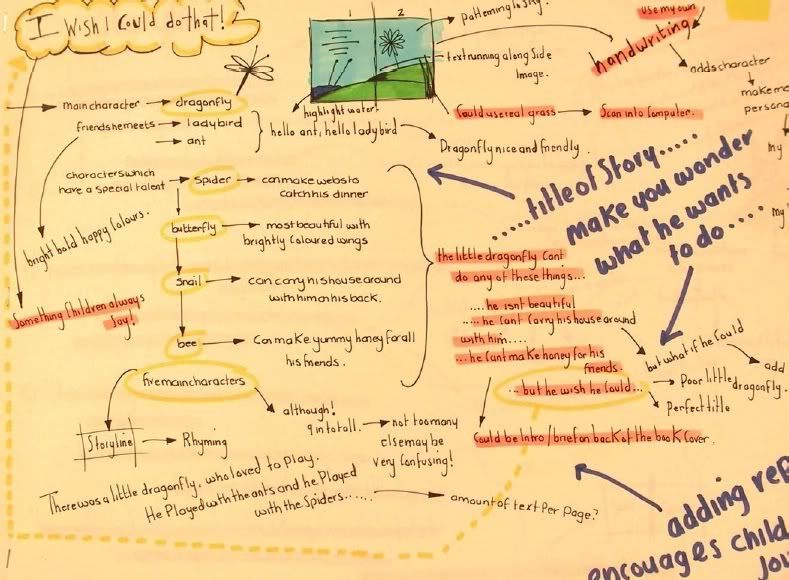 I Wish I Could do that!
1
2
patterning to sky.
use my own
handwriting
text running along side
image.
adds character
make me
persona
my
my
main character
dragonfly
friends he meets
ladybird
ant
highlight water!
hello ant, hello ladybird
Could use real grass
Scan into Computer.
Dragonfly nice and friendly.
characters which
have a special talent
spider
can make webs to
catch his dinner
butterfly
most beautiful with
brightly Coloured wings
snail
can carry his house around
with him on his back.
bee
Can make yummy honey for all
his friends.
bright bold happy colours.
Something Children always
Say!
.....title of Story.....
make you wonder
what he wants
to do....
the little dragonfly cant
do any of these things...
....he isnt beautiful
.....he Cant Carry his house around
with him....
...he Cant make honey for his
friends.
...but he wish he Could...
but what if he Could
add
Poor little dragonfly.
Perfect title
five main characters
although!
9 in total.
not too many
else may be
very Confusing!
Could be Intro/brief on back of the book Cover.
Storyline
Rhyming
There was a little dragonfly, who loved to play.
He Played with the ants and he Played
with the Spiders......
amount of text Per Page?
adding rep
encouages child
Jou